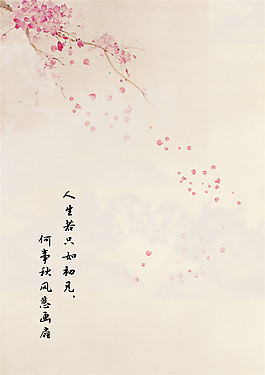 人生若只如初见，
何事秋风悲画扇